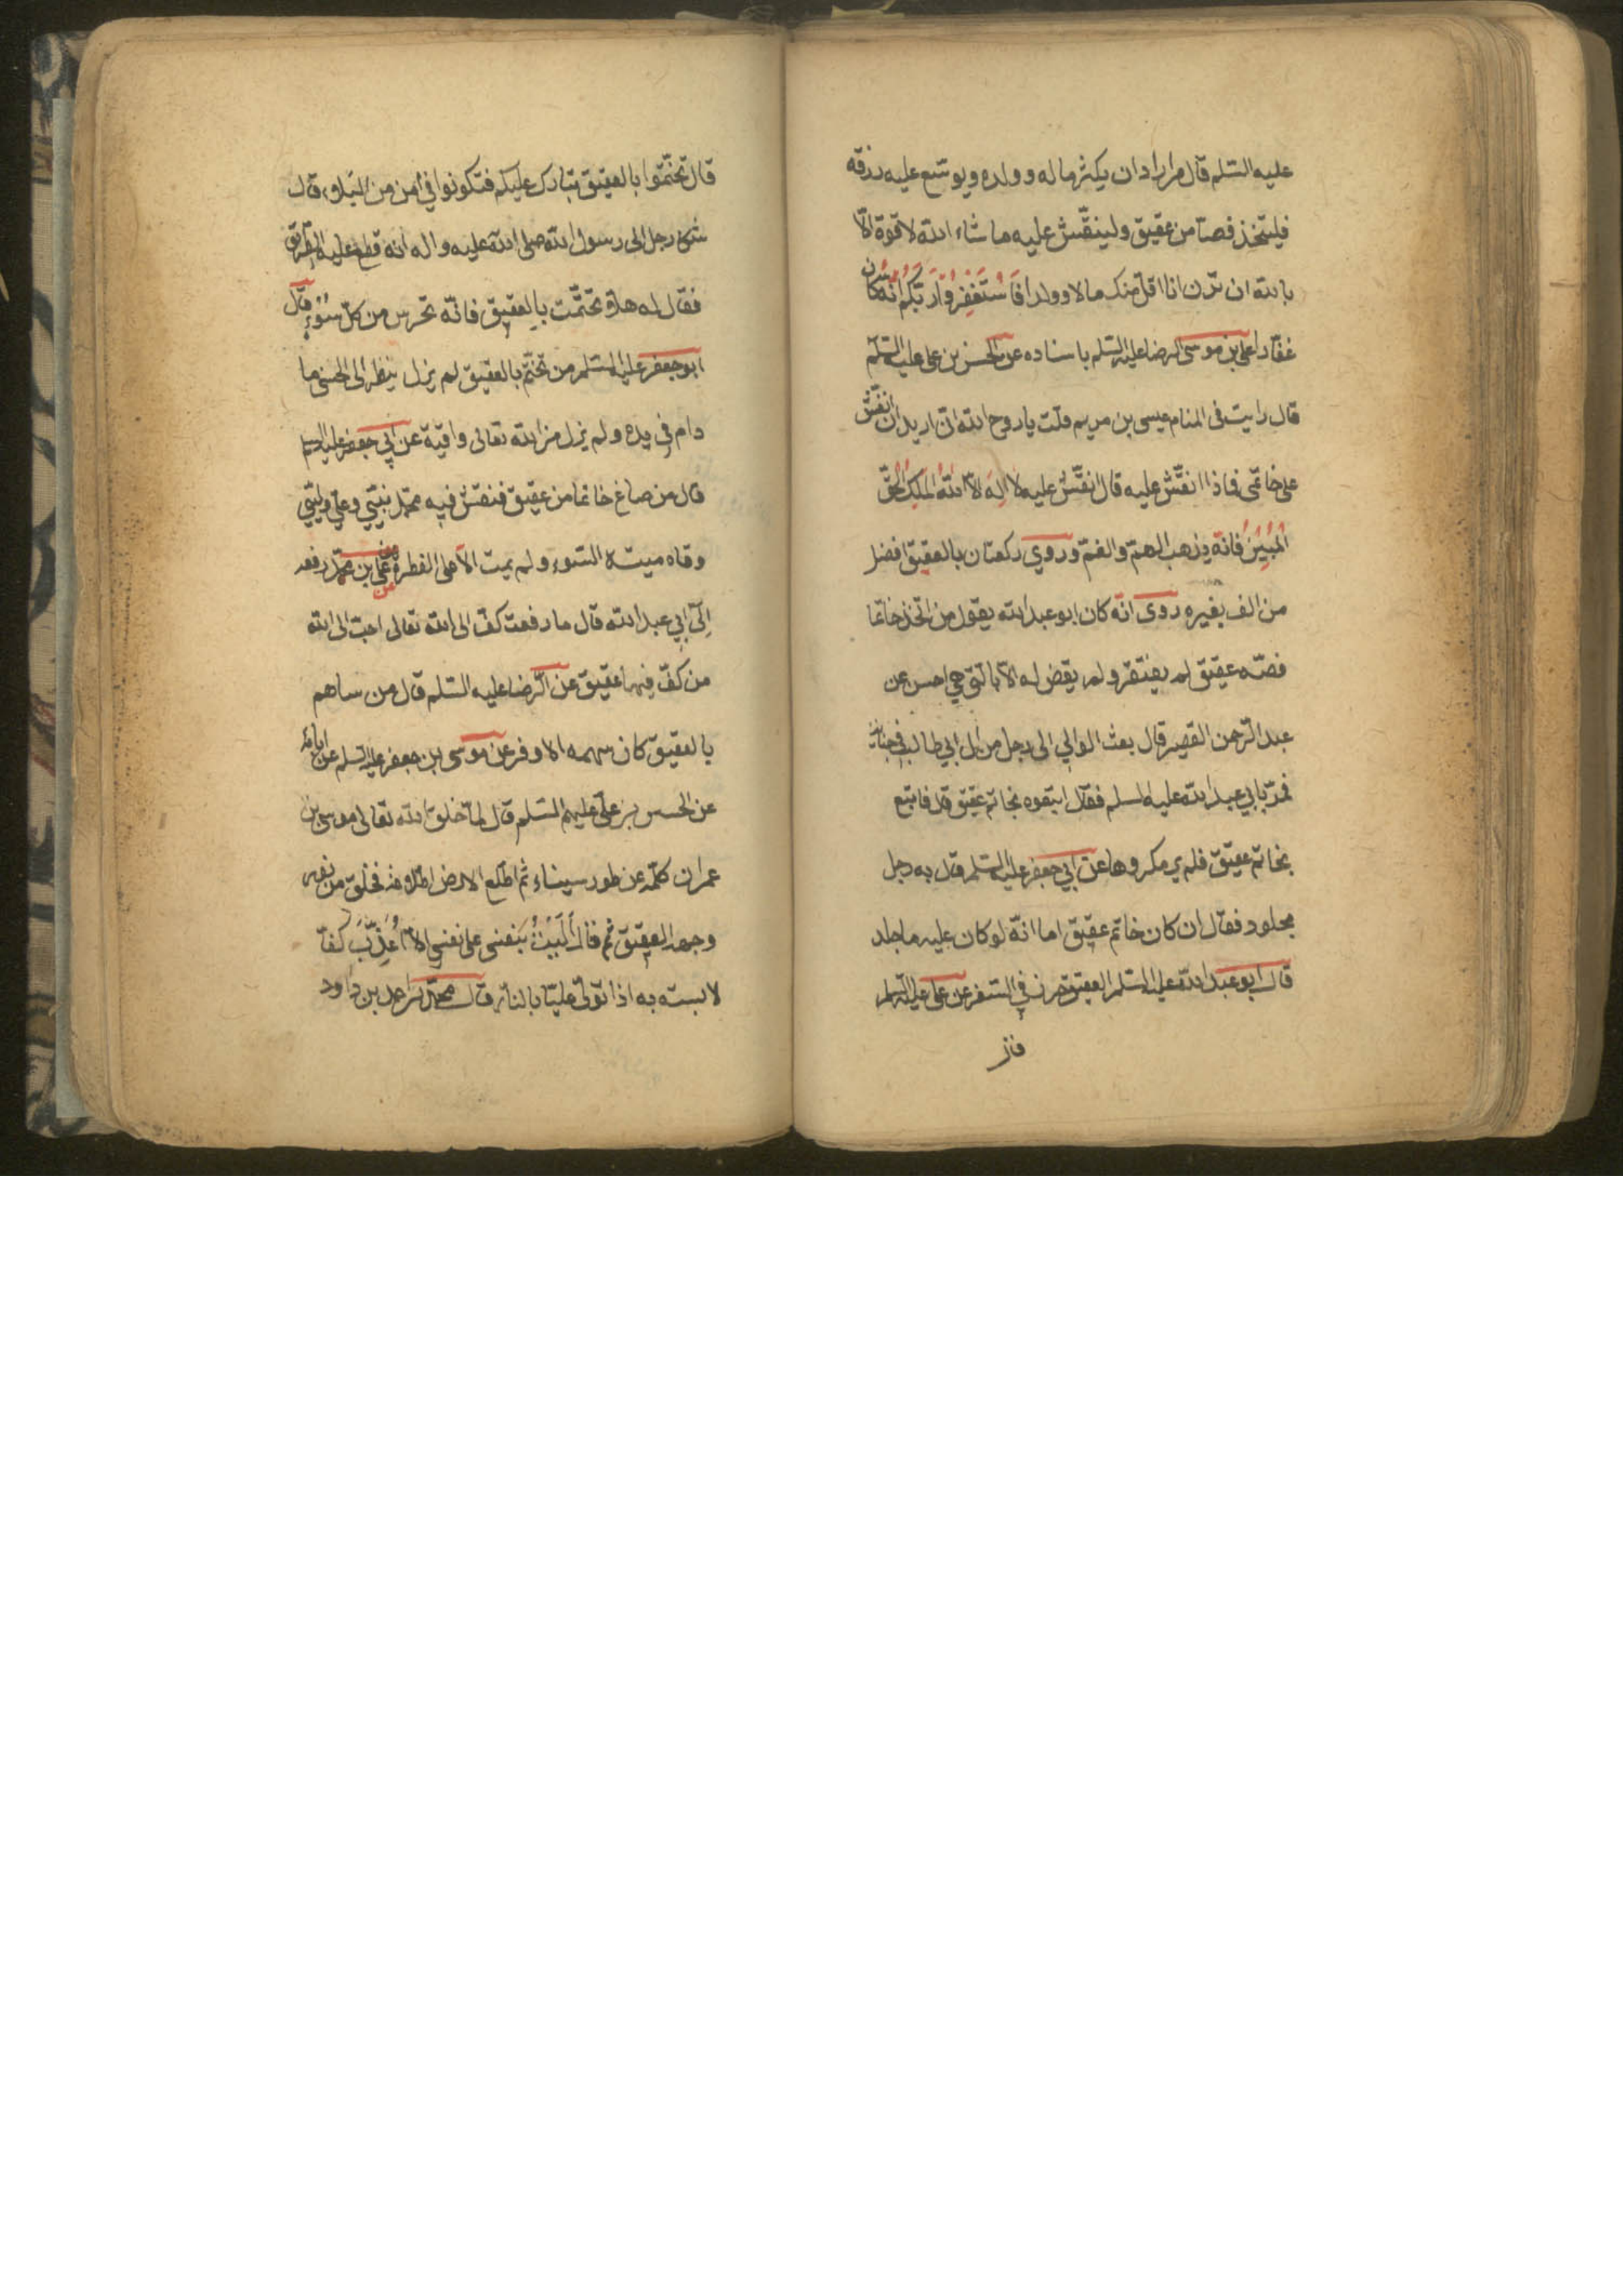 عليه السّلم قال من اراد ان يكثر ماله وولده ويوسّع عليه رزقه
فليتّخذ فصّا من عقيق ولينقّش عليه ما شاء الله لا قوة الّا
بالله ان ترن انا اقلّ منك مالا وولدا فَاسْتَغْفِرُوا رَبَّكُم انّه كان
غفّارا علي بن موسى الرضا عليه السّلم باسناده عن الحسن بن علي عليه السّلم
قال رايت فى المنام عيسى بن مريم قلت يا روح الله انّى اريد ان انقّش
على خاتمى فماذا انقّش عليه قال انقّش عليه لا اله الّا الله الملك الحقّ
المُبين فانّه يذهب الهمّ والغمّ وروي ركعتان بالعقيق افضل
من الف بغيره روى انّه كان ابو عبد الله يقول من اتّخذ خاتما
فصّه عقيق لم يفتقر ولم يقض له الّا بالّتى هي احسن عن
عبد الرّحمن القصير قال بعث الوالي الى رجل من آل ابي طالب في جناية
فمرّ بابي عبد الله عليه السلم فقال اتبعوه بخاتم عقيق قال فاتبع
بخاتم عقيق فلم ير مكروها عن ابي جعفر عليه السّلم قال به رجل
مجلود فقال ان كان خاتم عقيق اما انّه لو كان عليه ما جلد
قال ابو عبد الله عليه السّلم العقيق حرز في السّفر عن علي عليه السّلم
قال
قال تختّموا بالعقيق يبارك عليكم فتكونوا في أمن من البلاء، قال
شكا رجل الى رسول الله صلى الله عليه واله انه قطع عليه الطّريق
فقال له هلّا تختّمت بالعقيق فانّه تحرس من كلّ سُوْء قال
ابو جعفر عليه السّلم من تختّم بالعقيق لم يزل ينظر الى الحسنى ما
دام فى يده ولم يزل من الله تعالى واقية عن ابي جعفر عليه السلم
قال من صاغ خاتما من عقيق فنقش فيه محمّد نبيّي وعلي وليّي
وقاه ميتة السّوء ولم يمت الّا على الفطرة عن علي بن محمّد رفعه
إلى ابي عبد الله قال ما رفعت كفّ الى الله تعالى احبّ الى الله
من كفّ فيها عقيق عن الرّضا عليه السّلم قال من ساهم
بالعقيق كان سهمه الاوفر عن موسى بن جعفر عليه السّلم عن ابائه
عن الحسين بن علي عليهم السّلم قال لمّا خلق الله تعالى موسى بن
عمران كلّمه عن طور سيناء ثم اطّلع الى الارض اطّلاعة فخلق من نور
وجهه العقيق ثم قال أَلَيْتُ بنفسى على نفسي الّا اُعَذِّبَ كفّا
لابسته به اذا تولّى عليّا بالنار قال محمّد بن احمد بن داود